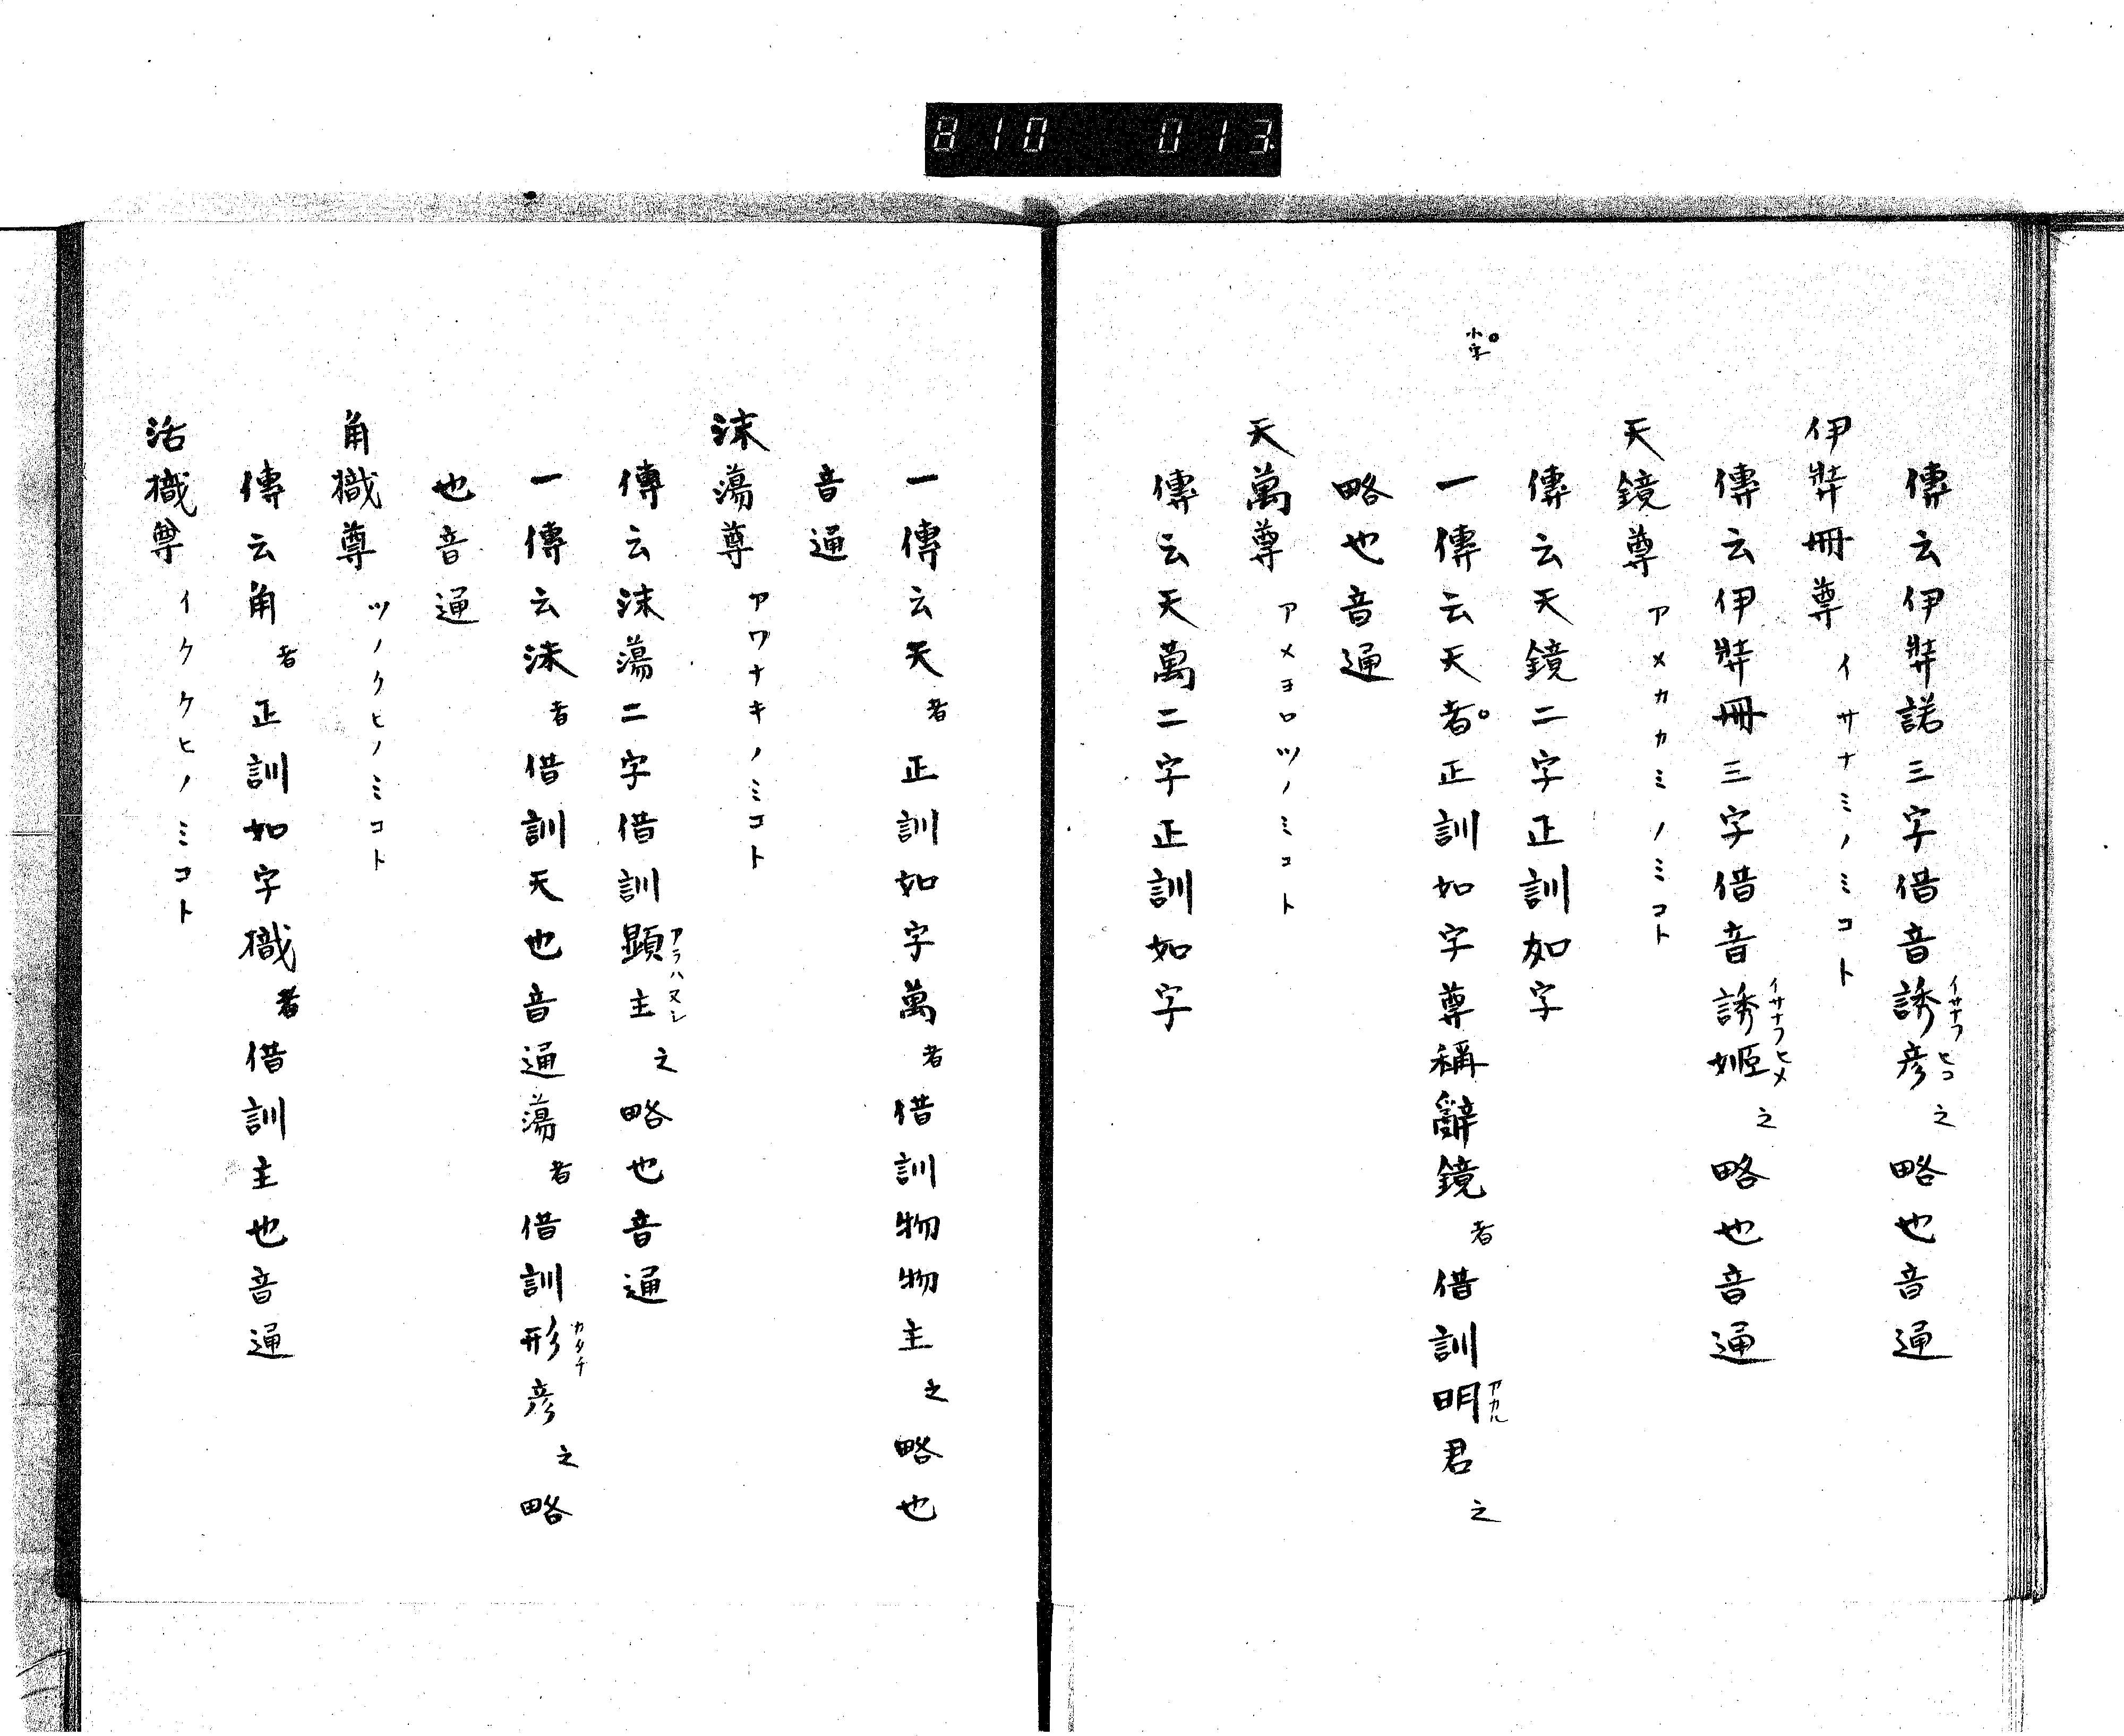 810 013
傳云伊弉諾三字借音誘彦イサナフヒコ之略也音通
伊弉冊尊イサナミノミコト
傳云伊弉冊三字借音誘姫イサナフヒメ之略也音通
天鏡尊アメカカミノミコト
傳云天鏡二字正訓如字
小字
一傳云天者正訓如字尊稱辭鏡者借訓明アカル君之
略也音通
天萬尊アメヨロツノミコト
傳云天萬二字正訓如字
一傳云天者正訓如字萬者借訓物物主之略也
音通
沫蕩尊アワナキノミコト
傳云沫蕩二字借訓顕主アラハヌシ之略也音通
一傳云沫者借訓天也音通蕩者借訓形カタチ彦之略
也音通
角樴尊ツノクヒノミコト
傳云角者正訓如字樴者借訓主也音通
活樴尊イククヒノミコト